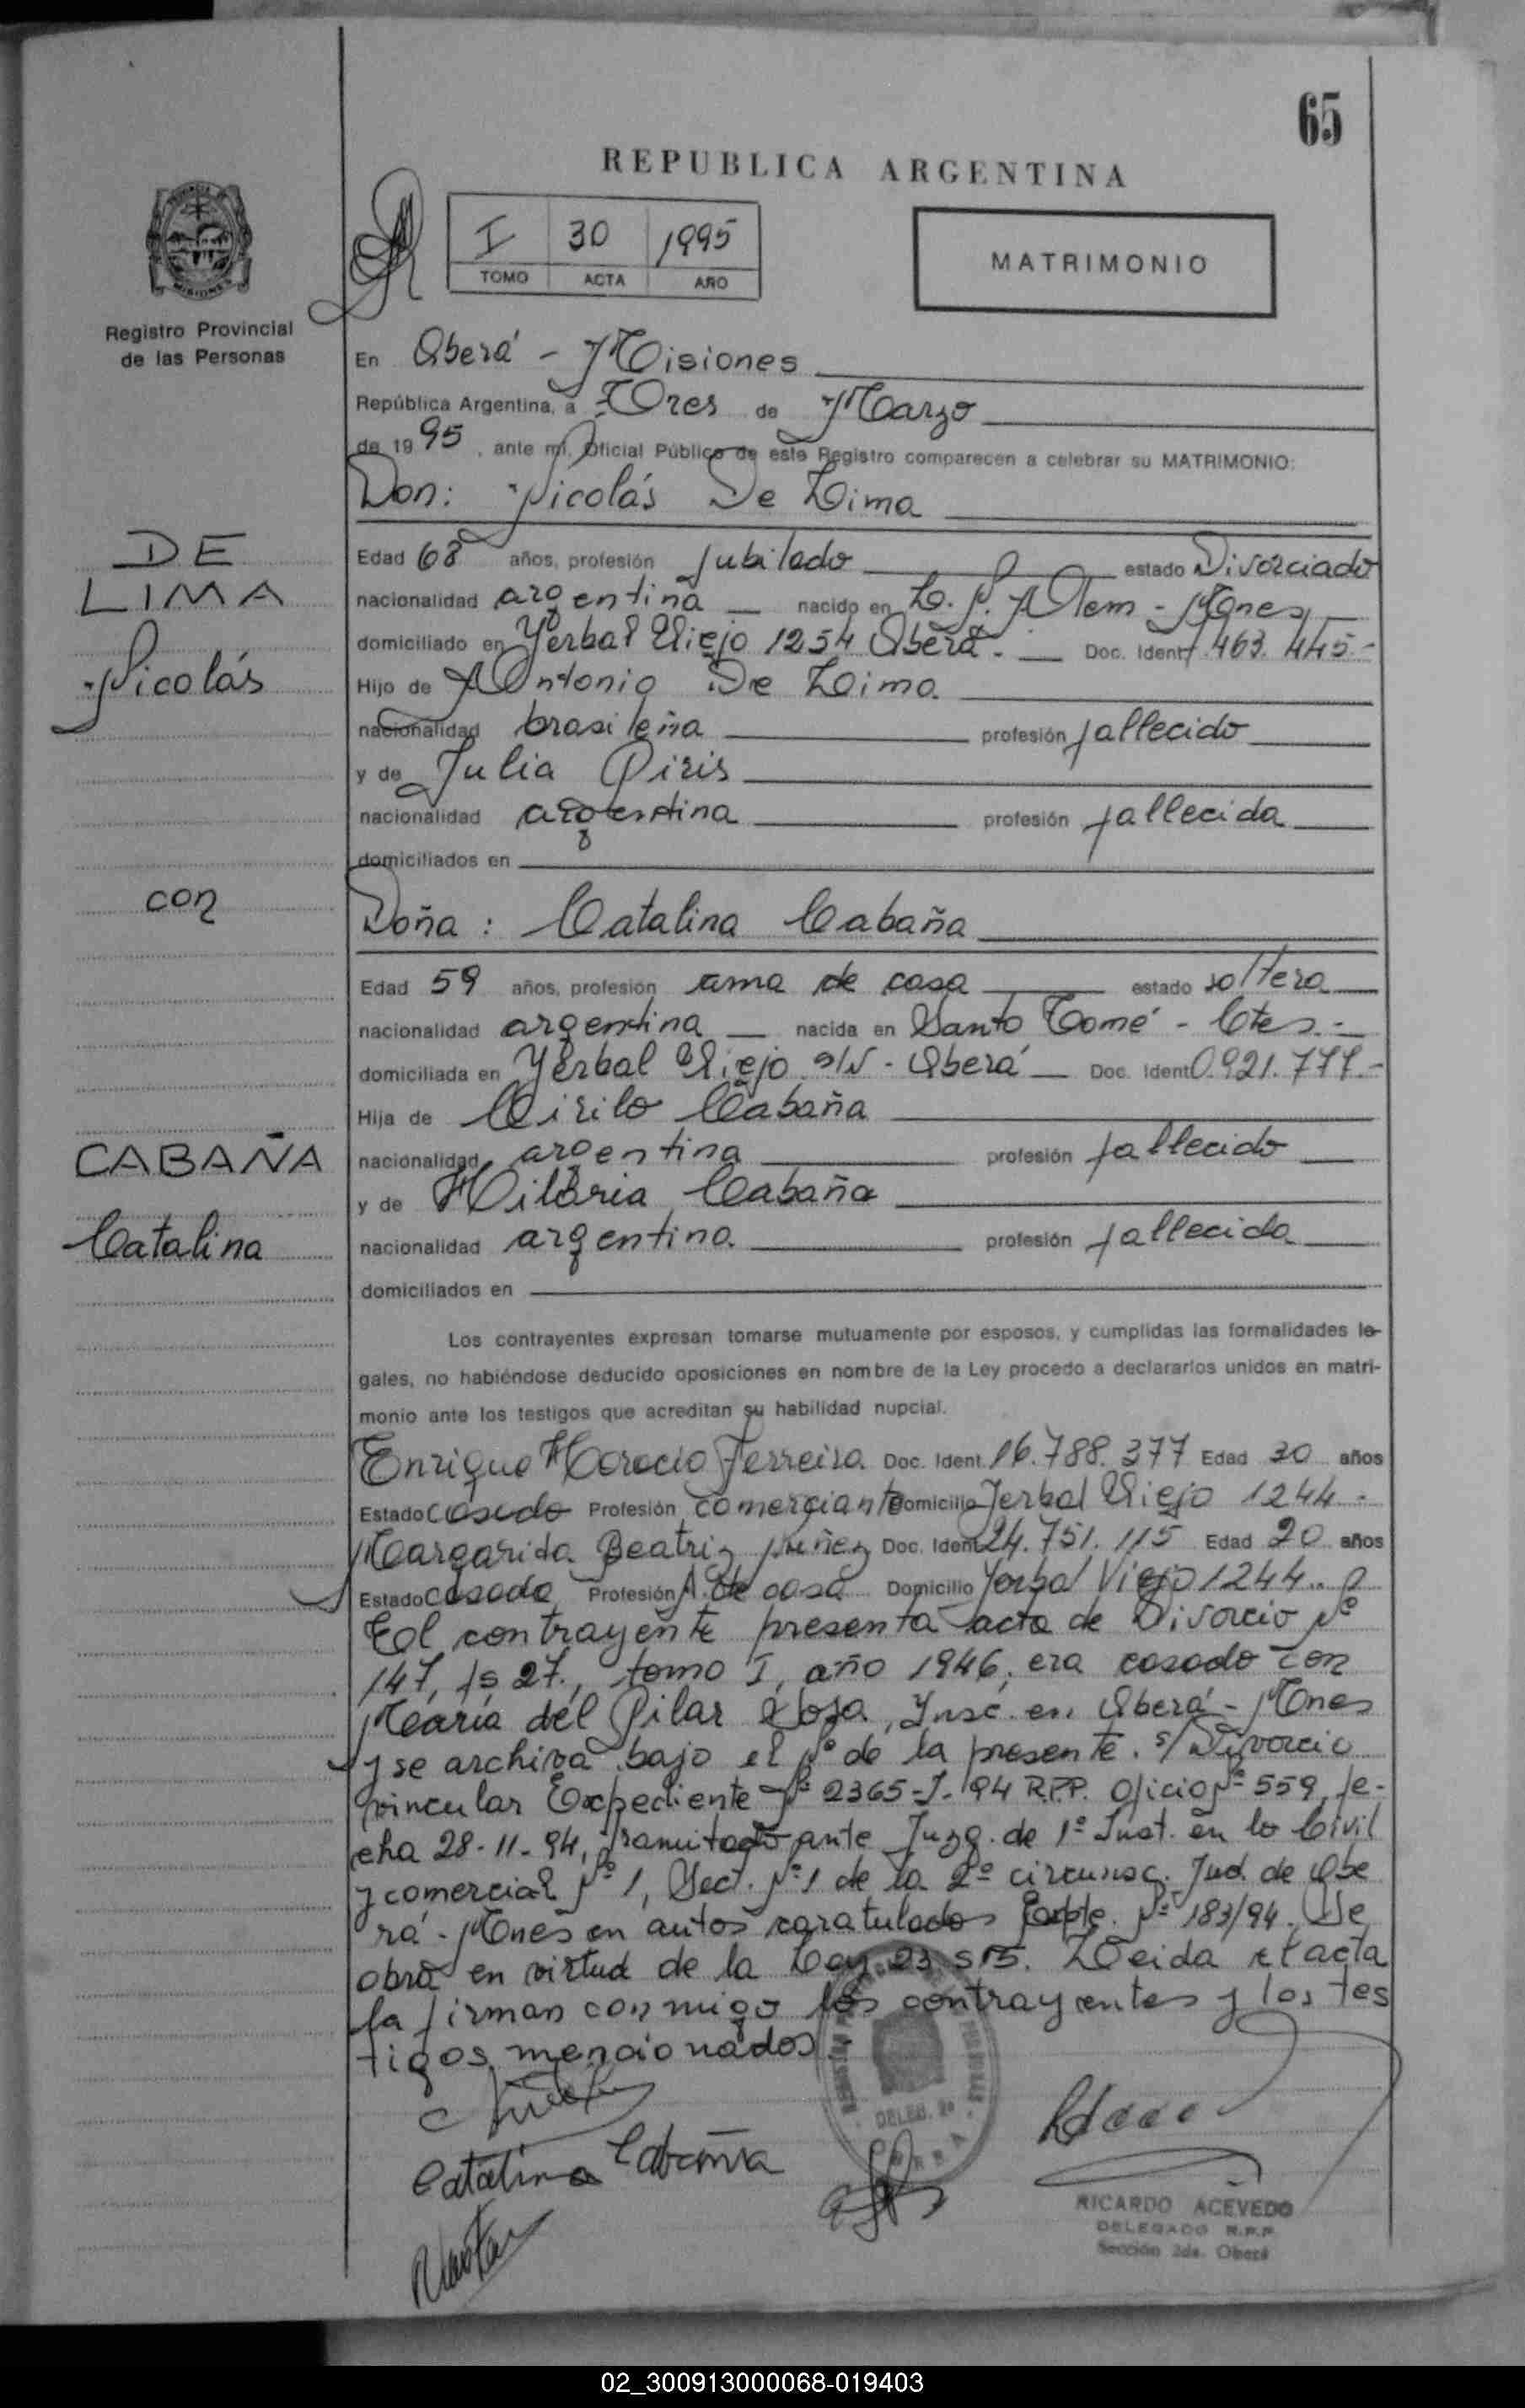 65
REPUBLICA ARGENTINA
I 30 1995
TOMO ACTA AÑO
MATRIMONIO
Registro Provincial
de las Personas
En Oberá - Misiones
República Argentina, a Tres de Marzo
de 1995, ante mí, Oficial Público de este Registro comparecen a celebrar su MATRIMONIO:
Don: Nicolás De Lima
DE
LIMA
Nicolás
Edad 68 años, profesión Jubilado estado Divorciado
nacionalidad argentina nacido en L. N. Alem - Mnes
domiciliado en Yerbal Viejo 1254 Oberá.- Doc. Ident 7.463.445.-
Hijo de Antonio De Lima
nacionalidad brasileña profesión fallecido
y de Julia Piris
nacionalidad argentina profesión fallecida
domiciliados en
con
Doña: Catalina Cabaña
Edad 59 años, profesión ama de casa estado soltera
nacionalidad argentina nacida en Santo Tomé - Ctes.-
domiciliada en Yerbal Viejo s/N - Oberá Doc. Ident 0.921.777.-
Hija de Cirilo Cabaña
CABAÑA
nacionalidad argentina profesión fallecido
y de Hilaria Cabaña
Catalina
nacionalidad argentina profesión fallecida
domiciliados en
Los contrayentes expresan tomarse mutuamente por esposos, y cumplidas las formalidades le-
gales, no habiéndose deducido oposiciones en nombre de la Ley procedo a declararlos unidos en matri-
monio ante los testigos que acreditan su habilidad nupcial.
Enrique Horacio Ferreira Doc. Ident. 16.788.377 Edad 30 años
Estado casado Profesión comerciante Domicilio Yerbal Viejo 1244.-
Margarida Beatriz Nuñez Doc. Ident 24.751.115 Edad 20 años
Estado casada Profesión A. de casa Domicilio Yerbal Viejo 1244..
El contrayente presenta acta de Divorcio Nº
147, fs 27., tomo I, año 1946, era casado con
María del Pilar Sosa, Insc. en Oberá - Mnes
y se archiva bajo el Nº de la presente. s/ Divorcio
vincular Expediente Nº 2365-J-94 R.P.P. Oficio Nº 559, fe-
cha 28-11-94, tramitado ante Juzg. de 1º Inst. en lo Civil
y comercial Nº 1, Sect. Nº 1 de la 2º circunsc. Jud. de Obe
rá - Mnes en autos caratulados Expte. Nº 183/94. Se
obró en virtud de la Ley 23.515. Leida el acta
la firman conmigo los contrayentes y los tes
tigos mencionados.-
DELEG. 2ª
Catalina Cabaña
RICARDO ACEVEDO
DELEGADO R.P.P
Sección 2da. Oberá
02_300913000068-019403